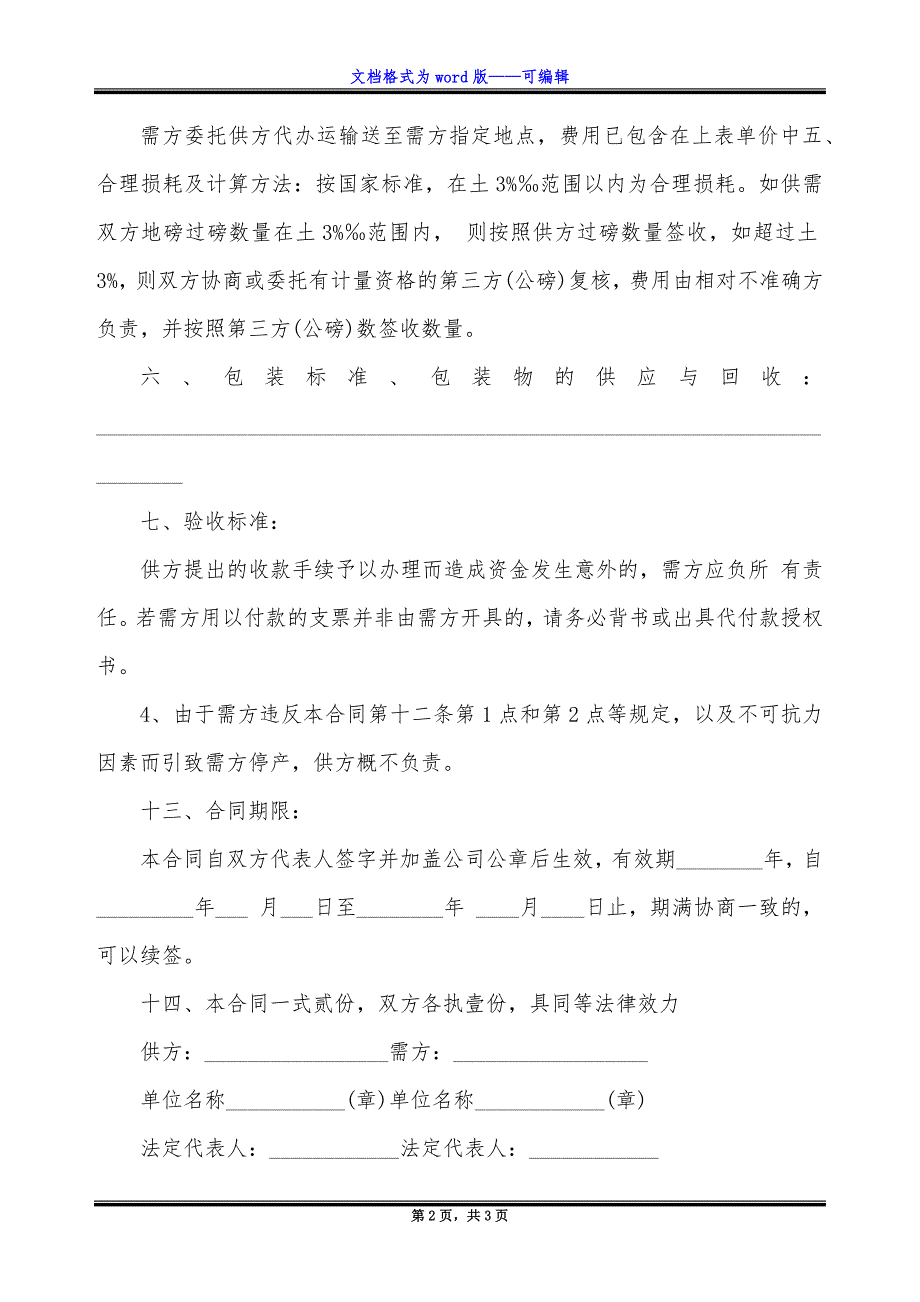 文档格式为 word 版——可编辑
需方委托供方代办运输送至需方指定地点，费用已包含在上表单价中五、
合理损耗及计算方法：按国家标准，在土 3%‰范围以内为合理损耗。如供需
双方地磅过磅数量在土 3%‰范围内， 则按照供方过磅数量签收，如超过土
3%，则双方协商或委托有计量资格的第三方(公磅)复核，费用由相对不准确方
负责，并按照第三方(公磅)数签收数量。
六、包装标准、包装物的供应与回收：
___________________________________________________________________
________
七、验收标准：
供方提出的收款手续予以办理而造成资金发生意外的，需方应负所 有责
任。若需方用以付款的支票并非由需方开具的，请务必背书或出具代付款授权
书。
4、由于需方违反本合同第十二条第 1 点和第 2 点等规定，以及不可抗力
因素而引致需方停产，供方概不负责。
十三、合同期限：
本合同自双方代表人签字并加盖公司公章后生效，有效期________年，自
_________年___ 月___日至________年 ____月____日止，期满协商一致的，
可以续签。
十四、本合同一式贰份，双方各执壹份，具同等法律效力
供方：_________________需方：__________________
单位名称___________(章)单位名称____________(章)
法定代表人：____________法定代表人：____________
第 2 页，共 3 页